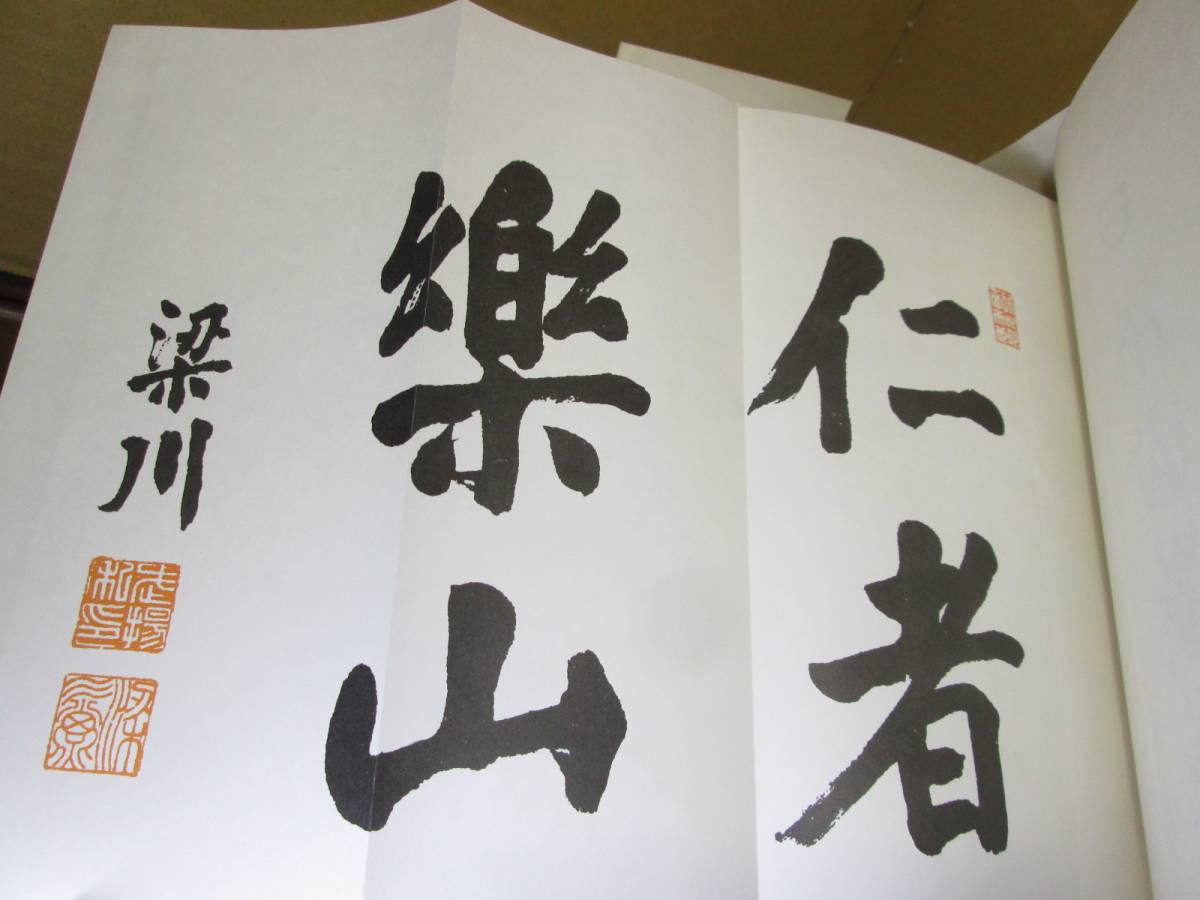 仁者
樂山
梁川